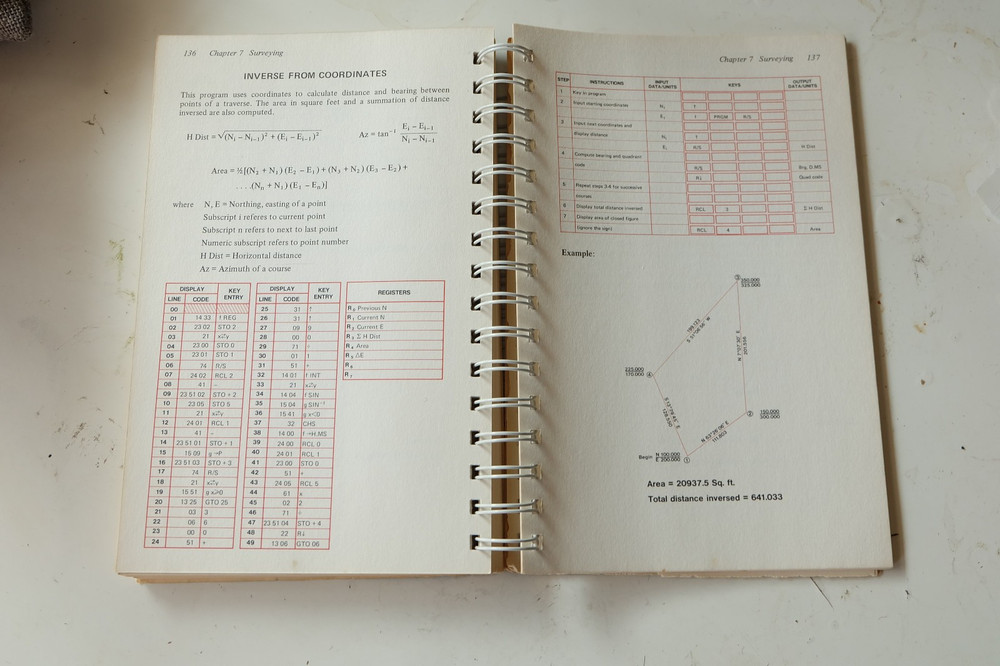 136 Chapter 7 Surveying
INVERSE FROM COORDINATES
This program uses coordinates to calculate distance and bearing between
points of a traverse. The area in square feet and a summation of distance
inversed are also computed.
H Dist = √(Nᵢ − Nᵢ₋₁)² + (Eᵢ − Eᵢ₋₁)² Az = tan⁻¹ Eᵢ − Eᵢ₋₁ / Nᵢ − Nᵢ₋₁
Area = ½[(N₂ + N₁) (E₂ − E₁) + (N₃ + N₂) (E₃ − E₂) +
. . . .(Nₙ + N₁) (E₁ − Eₙ)]
where N, E = Northing, easting of a point
Subscript i referes to current point
Subscript n referes to next to last point
Numeric subscript refers to point number
H Dist = Horizontal distance
Az = Azimuth of a course
DISPLAY KEY ENTRY
LINE CODE
00
01 14 33 f REG
02 23 02 STO 2
03 21 x⇄y
04 23 00 STO 0
05 23 01 STO 1
06 74 R/S
07 24 02 RCL 2
08 41 −
09 23 51 02 STO + 2
10 23 05 STO 5
11 21 x⇄y
12 24 01 RCL 1
13 41 −
14 23 51 01 STO + 1
15 15 09 g →P
16 23 51 03 STO + 3
17 74 R/S
18 21 x⇄y
19 15 51 g x≥0
20 13 25 GTO 25
21 03 3
22 06 6
23 00 0
24 51 +
DISPLAY KEY ENTRY
LINE CODE
25 31 ↑
26 31 ↑
27 09 9
28 00 0
29 71 ÷
30 01 1
31 51 +
32 14 01 f INT
33 21 x⇄y
34 14 04 f SIN
35 15 04 g SIN⁻¹
36 15 41 g x<0
37 32 CHS
38 14 00 f →H.MS
39 24 00 RCL 0
40 24 01 RCL 1
41 23 00 STO 0
42 51 +
43 24 05 RCL 5
44 61 x
45 02 2
46 71 ÷
47 23 51 04 STO + 4
48 22 R↓
49 13 06 GTO 06
REGISTERS
R₀ Previous N
R₁ Current N
R₂ Current E
R₃ Σ H Dist
R₄ Area
R₅ ΔE
R₆
R₇
Chapter 7 Surveying 137
STEP INSTRUCTIONS INPUT DATA/UNITS KEYS OUTPUT DATA/UNITS
1 Key in program
2 Input starting coordinates N₁ ↑
E₁ f PRGM R/S
3 Input next coordinates and
display distance Nᵢ ↑
Eᵢ R/S H Dist
4 Compute bearing and quadrant
code R/S Brg, D.MS
R↓ Quad code
5 Repeat steps 3-4 for successive
courses
6 Display total distance inversed RCL 3 Σ H Dist
7 Display area of closed figure
(ignore the sign) RCL 4 Area
Example:
3
350.000
325.000
S 51°06'56" W
N 7°07'30" E
201.556
225.000
170.000
4
2
150.000
300.000
N 63°26'06" E
111.803
Begin N 100.000
E 200.000
1
Area = 20937.5 Sq. ft.
Total distance inversed = 641.033